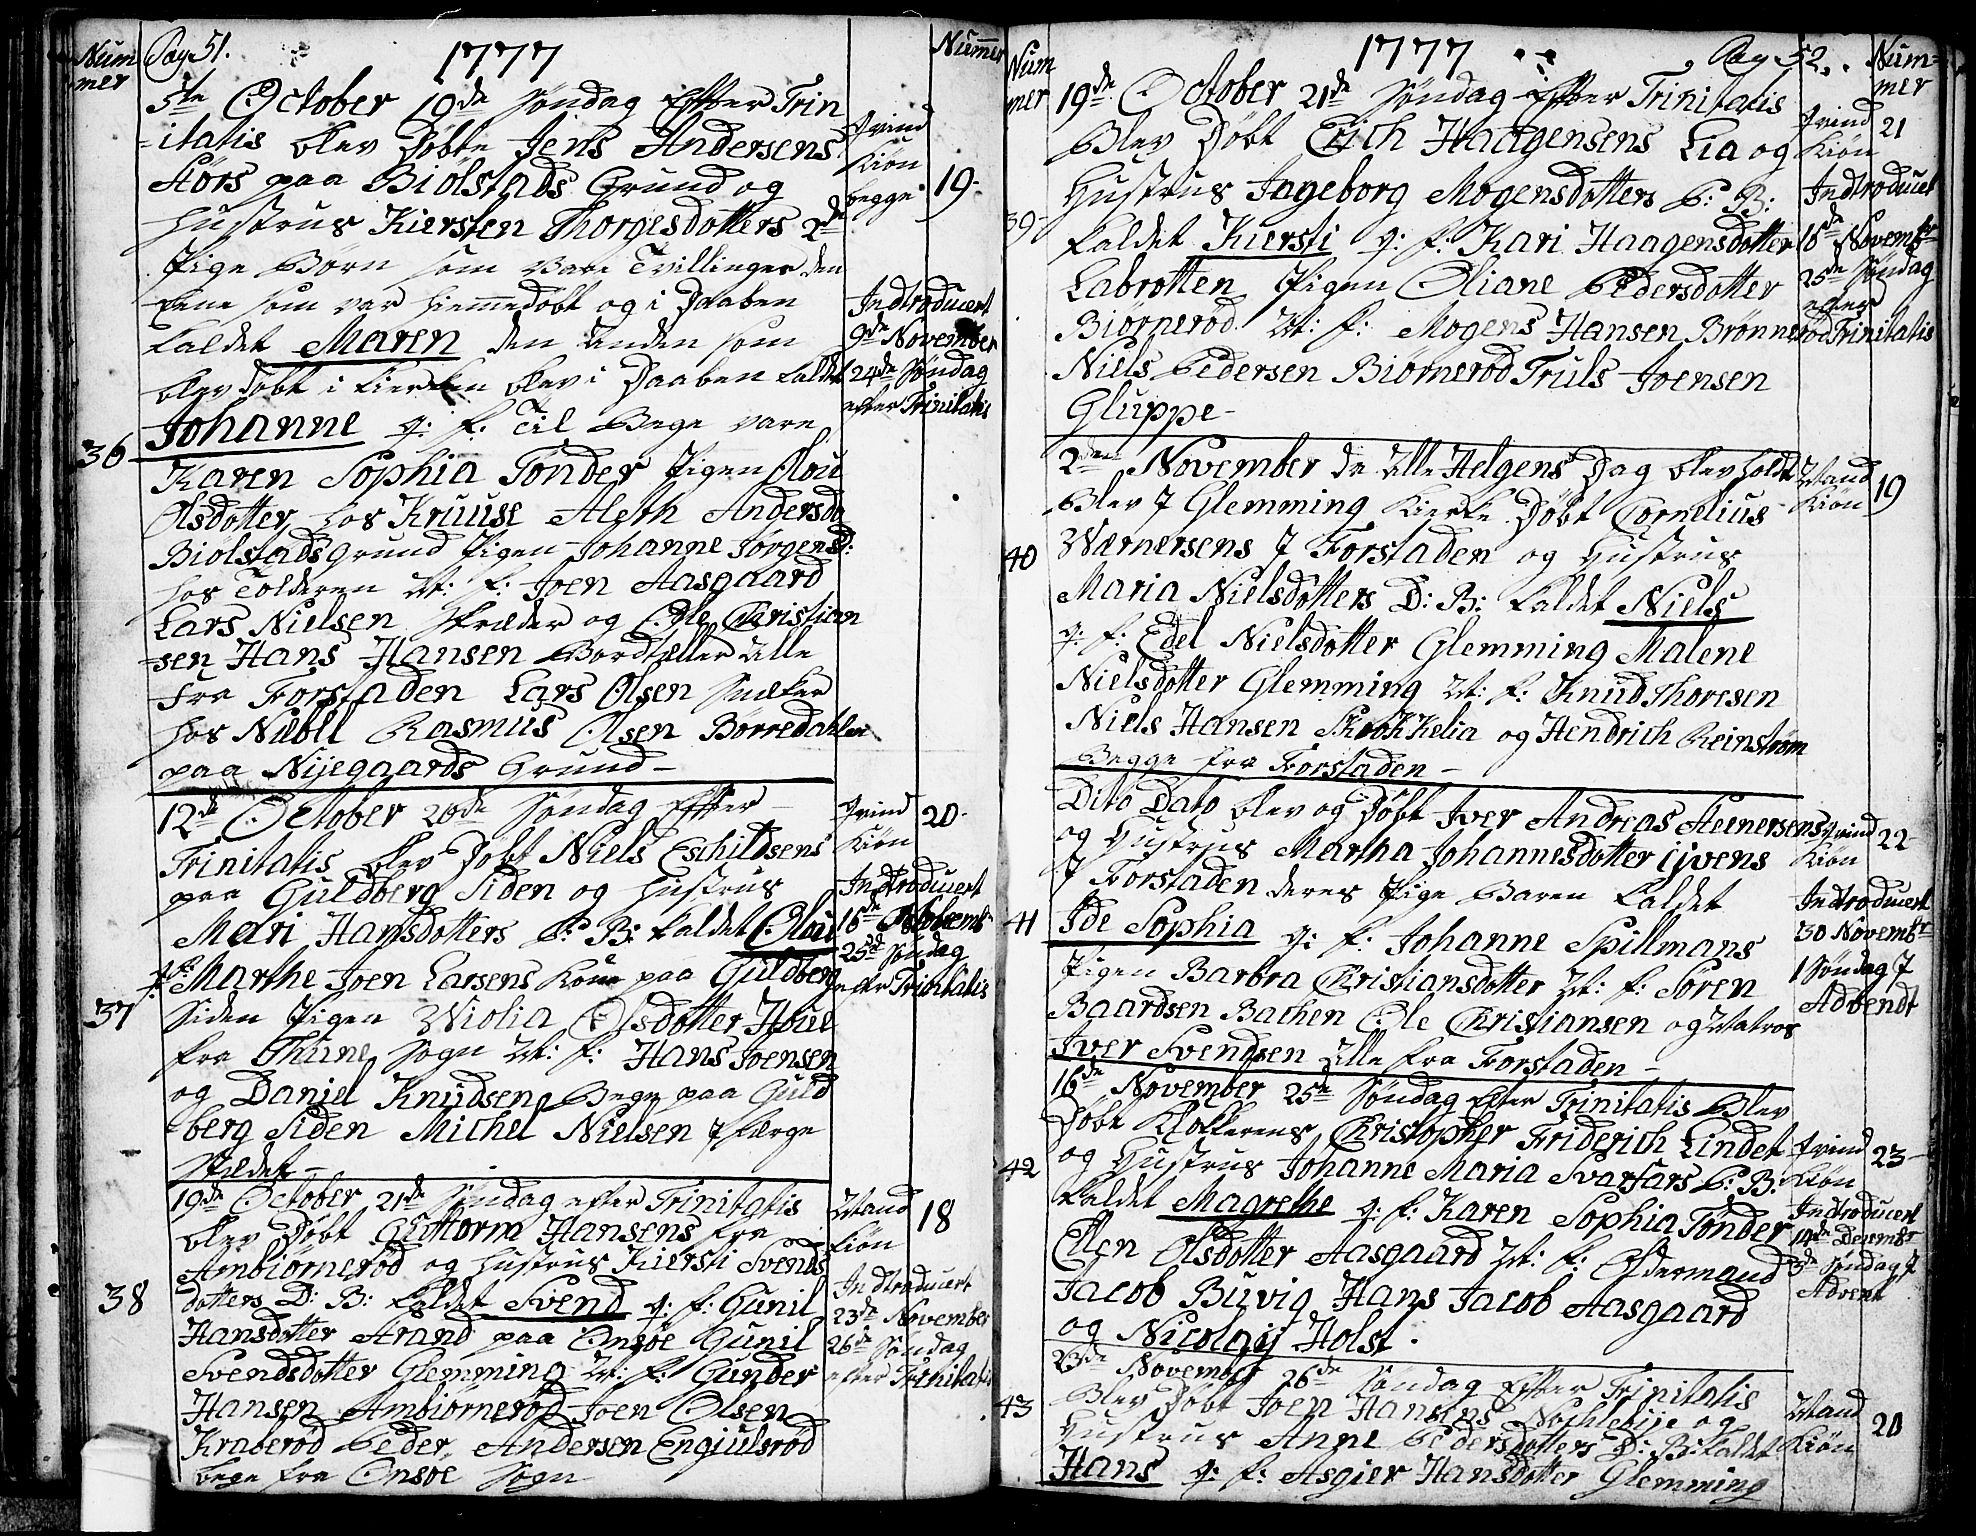 Nummer
Pag. 51.
1777
Nummer
5te October 19de Søndag Efter Trin
-itatis blev Døbte Jens Andersens
Størs paa Biølstads Grund og
Hustrus Kiersten Thorgesdotters 2de
Pige Børn som vare Tvillinger den
Eene som var hiemmedøbt og i Daaben
kaldet Maren den Anden som
blev døbt i Kierken blev i Daaben kaldet
Johanne q: f: Til Bege vare
Karen Sophia Tønder Pigen Oloü
Olsdotter hos Krüüse Aleth Andersda
Biølstads Grund Pigen Johanne Jørgensd:
hos Tolderen M: f: Joen Aasgaard
Lars Nielsen Skræder og Ole Christian
-sen Hans Hansen Bordtæller Alle
fra Forstaden Lars Olsen Snæker
hos Næbll Rasmus Olsen Børredahlen
paa Nijegaards Grund -
36
Qvind
Kiøn
begge
19-
Indtroducert
9de November
24de Søndag
efter Trinitatis
12de October 20de Søndag Efter
Trinitatis blev Døbt Niels Eschildsens
paa Guldberg Siden og Hustrus
Mari Hansdotters P: B: kaldet Oloü
q: f: Marthe Joen Larsens Kone paa Guldberg
Siden Pigen Wiolia Olsdotter Hoüe
fra Thune Sogn M: f: Hans Joensen
og Daniel Knudsen Bege paa Guld
berg Siden Michel Nielsen J færge
Stædet -
37
Qvind
Kiøn
20-
Indtroducert
16de Novembr
25de Søndag
efter Trinitatis
19de October 21de Søndag efter Trinitatis
blev Døbt Güttorm Hansens fra
Ambiørnerød og Hustrus Kiersti Svends
dotters D: B: kaldet Svend q: f: Gunil
Hansdotter Arand paa Onsøe Gunil
Svendsdotter Glemming M: f: Gunder
Hansen Ambiørnerød Joen Olsen
Kraberød Peder Andersen Engiulsrød
bege fra Onsøe Sogn
38
Mand
kiøn
18
Indtroducert
23de November
26de Søndag
efter Trinitatis
Nummer
1777
Pag 52.
Nummer
19de October 21de Søndag Efter Trinitatis
Blev Døbt Erich Haagensens Lia og
Hustrus Ingeborg Mogensdotters P: B:
kaldet Kiersti q: f: Kari Haagensdotter
Labrotten Pigen Oliane Pedersdotter
Biørnerød M: f: Mogens Hansen Brønnerød
Niels Pedersen Biørnerød Truls Joensen
Gluppe-
39-
Qvind
Kiøn
21
Indtroducert
16de Novembr
25de Søndag
efter
Trinitatis
2den November da Alle Helgens Dag blev holdt
Blev J Glemming Kierke Døbt Cornelius
Wærnersens J Forstaden og Hustrus
Maria Nielsdotters D: B: kaldet Niels
q: f: Edel Nielsdotter Glemming Malene
Nielsdotter Glemming M: f: Knud Thoresen
Niels Hansen Skrokkelia og Hendrich Reinstrøm
Begge fra Forstaden -
40
Mand
Kiøn
19
Dito Dato blev og Døbt Iver Andreas Steinersens
og Hustrus Martha Johannesdotter ijvens
J Forstaden deres Pige Baren kaldet
Ide Sophia q: f: Johanne Spillmans
Pigen Barbra Christiansdotter M: f: Søren
Baardsen Bachen Ole Christiansen og Matros
Iver Svendsen Alle fra Forstaden -
41
Qvind
Kiøn
22
Indtroducert
30 Novembr
1 Søndag J
Advendt
16de November 25de Søndag Efter Trinitatis Blev
Døbt Klokkerens Christopher Friderich Lindet
og Hustrus Johanne Maria Svarfars P: B:
kaldet Magrethe q: f: Karen Sophia Tønder
Ellen Olsdotter Aasgaard M: f: Oldermand
Jacob Buvig Hans Jacob Aasgaard
og Nicolaij Holst.
42
Qvind
Kiøn
23-
Indtroducert
14de Decembr
3de Søndag J
Advent
23de November 26de Søndag Efter Trinitatis
Blev Døbt Joen Hansens Nochlebije og
Hustrus Anne Pedersdotters D: B: kaldet
Hans q: f: Asgier Hansdotter Glemming
43
Mand
Kiøn
20